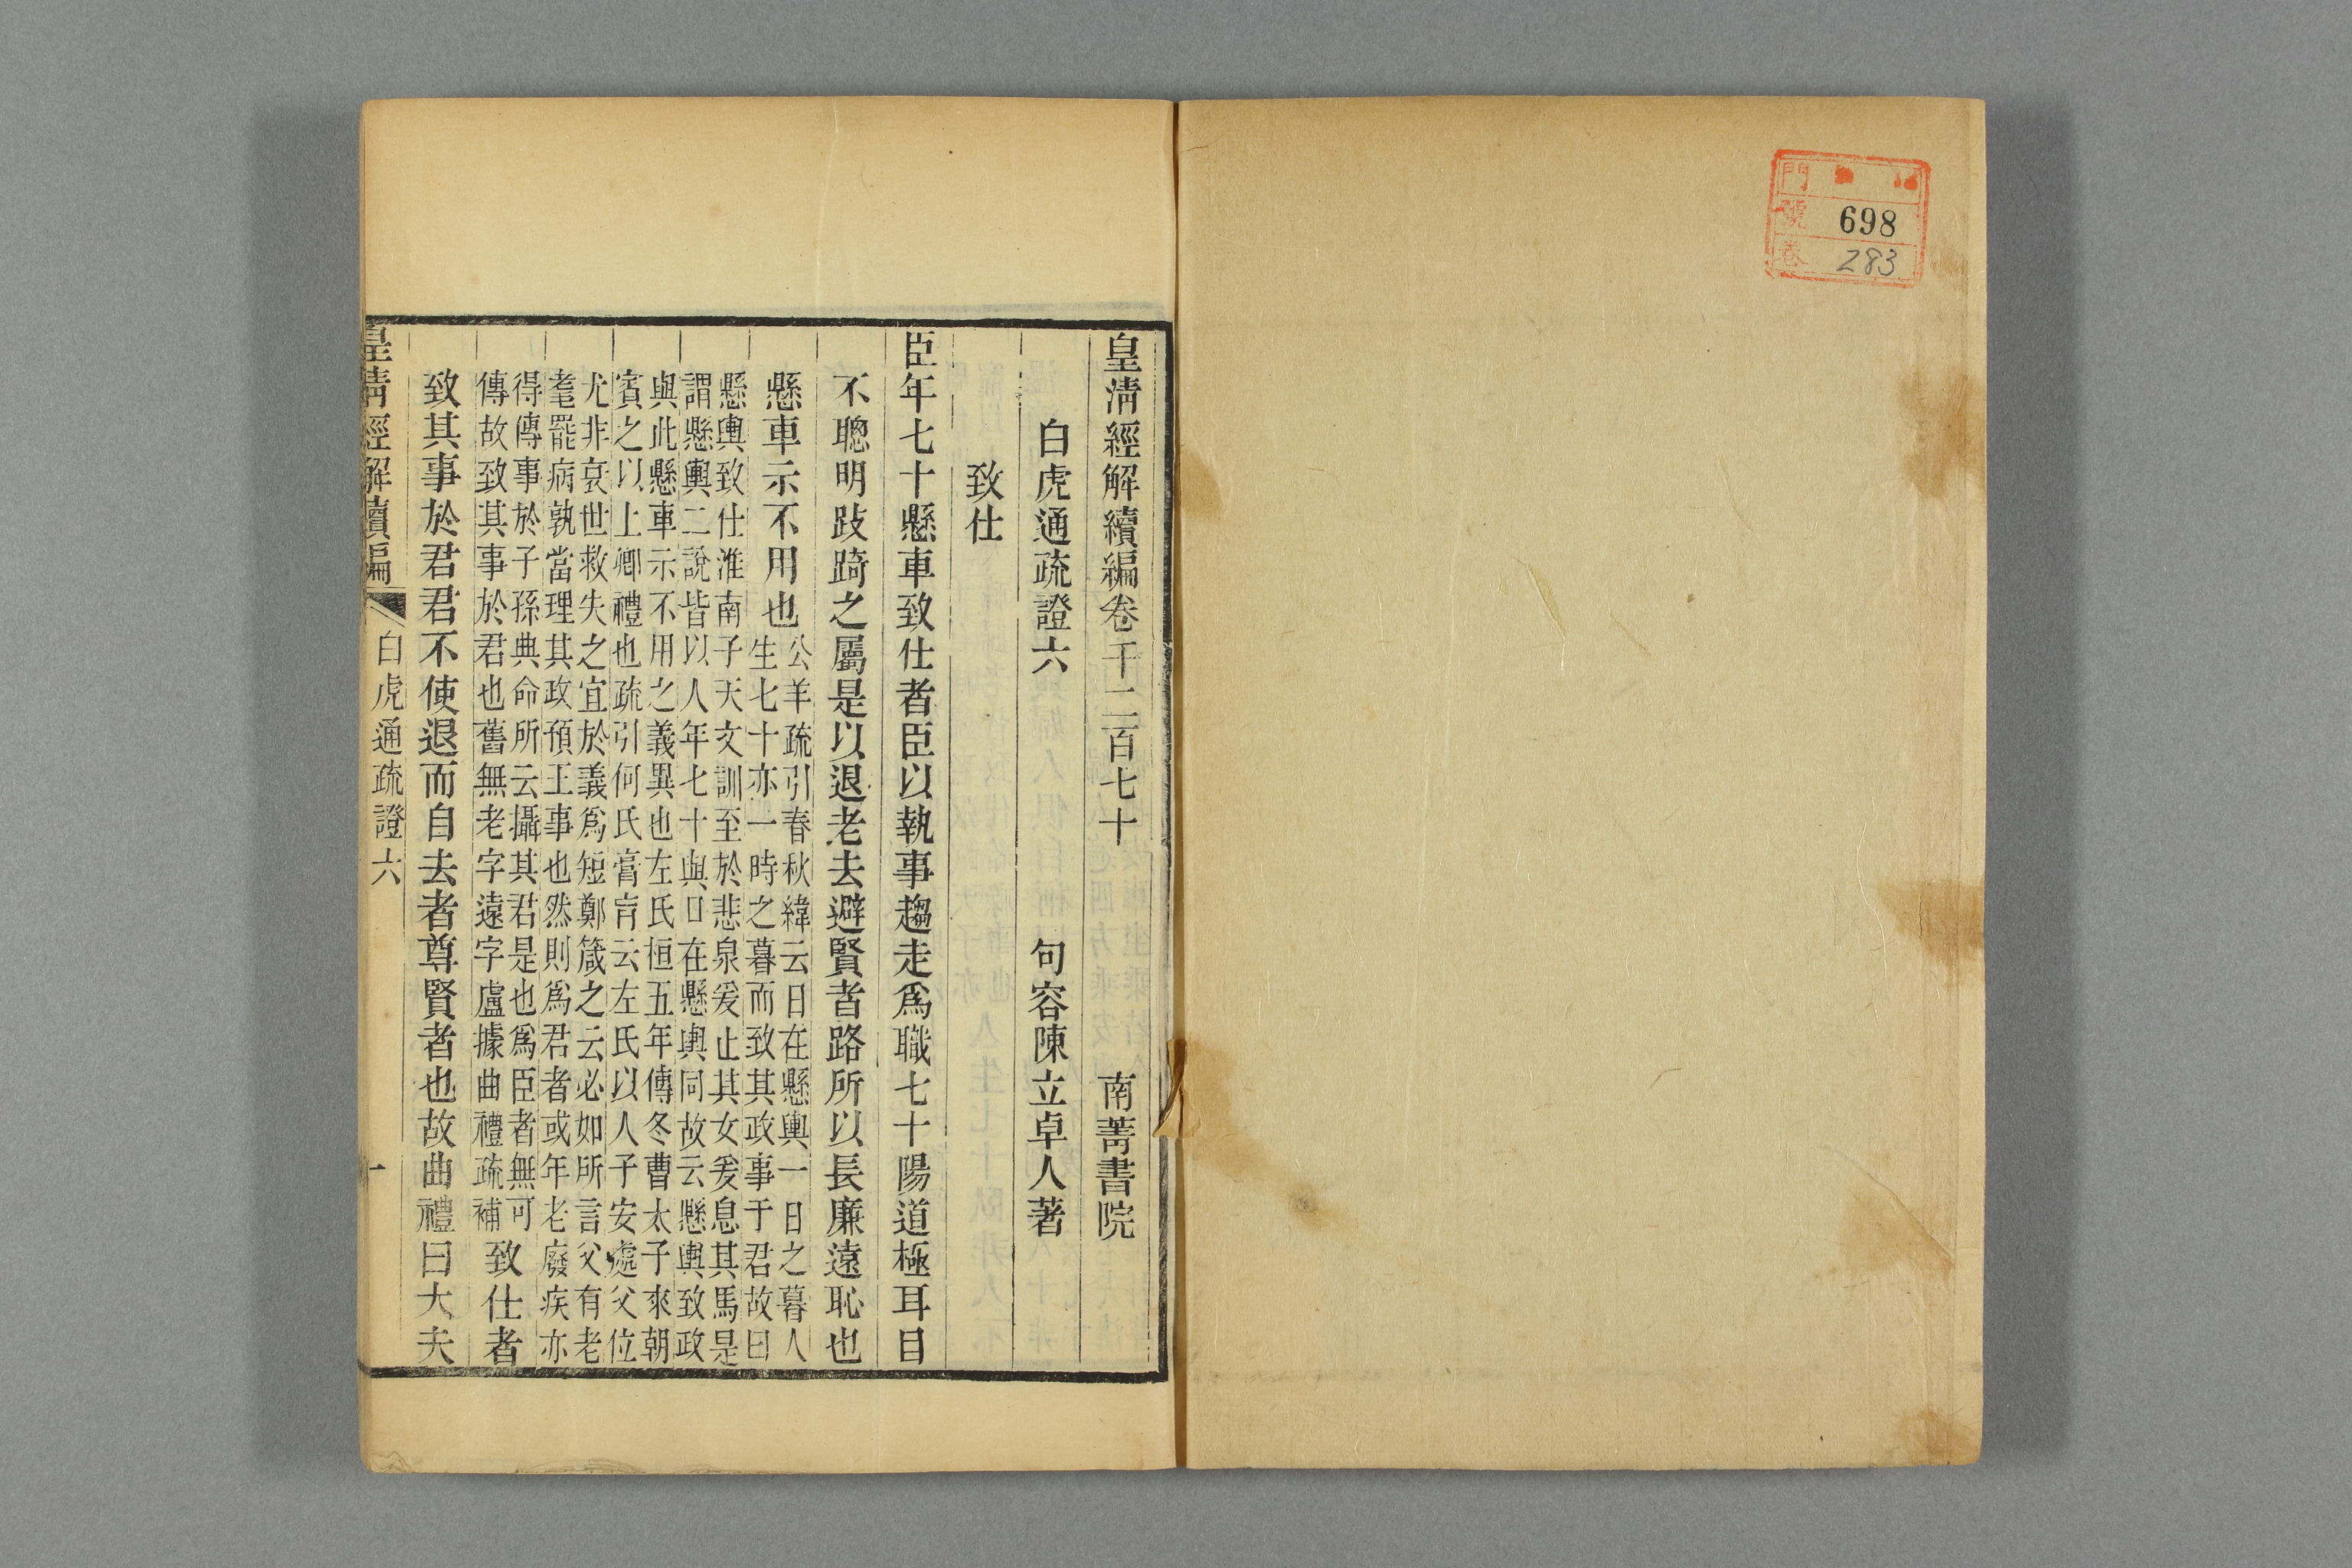 門
號 698
卷 283
皇清經解續編卷千二百七十 南菁書院
白虎通疏證六 句容陳立卓人著
致仕
臣年七十懸車致仕者臣以執事趨走爲職七十陽道極耳目
不聰明跂踦之屬是以退老去避賢者路所以長廉遠恥也
懸車示不用也
公羊疏引春秋緯云日在懸輿一日之暮人
生七十亦一時之暮而致其政事于君故曰
懸輿致仕淮南子天文訓至於悲泉爰止其女爰息其馬是
謂懸輿二說皆以人年七十與日在懸輿同故云懸輿致政
與此懸車示不用之義異也左氏桓五年傳冬曹太子來朝
賓之以上卿禮也疏引何氏膏肓云左氏以人子安處父位
尤非衰世救失之宜於義爲短鄭箴之云必如所言父有老
耄罷病孰當理其政預王事也然則爲君者或年老廢疾亦
得傳事於子孫典命所云攝其君是也爲臣者無可
傳故致其事於君也舊無老字遠字盧據曲禮疏補
致仕者
致其事於君君不使退而自去者尊賢者也故曲禮曰大夫
皇清經解續編 白虎通疏證六 一